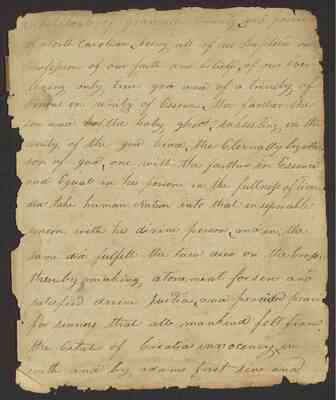 of granvill County and
of north Carolina being all of us baptized on
profession of our faith and beliefe, of our ever
living only true god and of a trinity of
in unity of Essence, the farther the
son and the holy ghost, subsisting in the
unity of the god head, the Eternally begotten
son of god, one with the farther in Essence
and Equal in his person in the fullness of time
did take human nature into that inseprable
union with his devine person and in the
same did fulfill the law died on the
thereby making atonement for sin and
satisfied devine Justice and
for sinners that all mankind fell from
the Estate of Creation innocency in
with and by adams first sin and